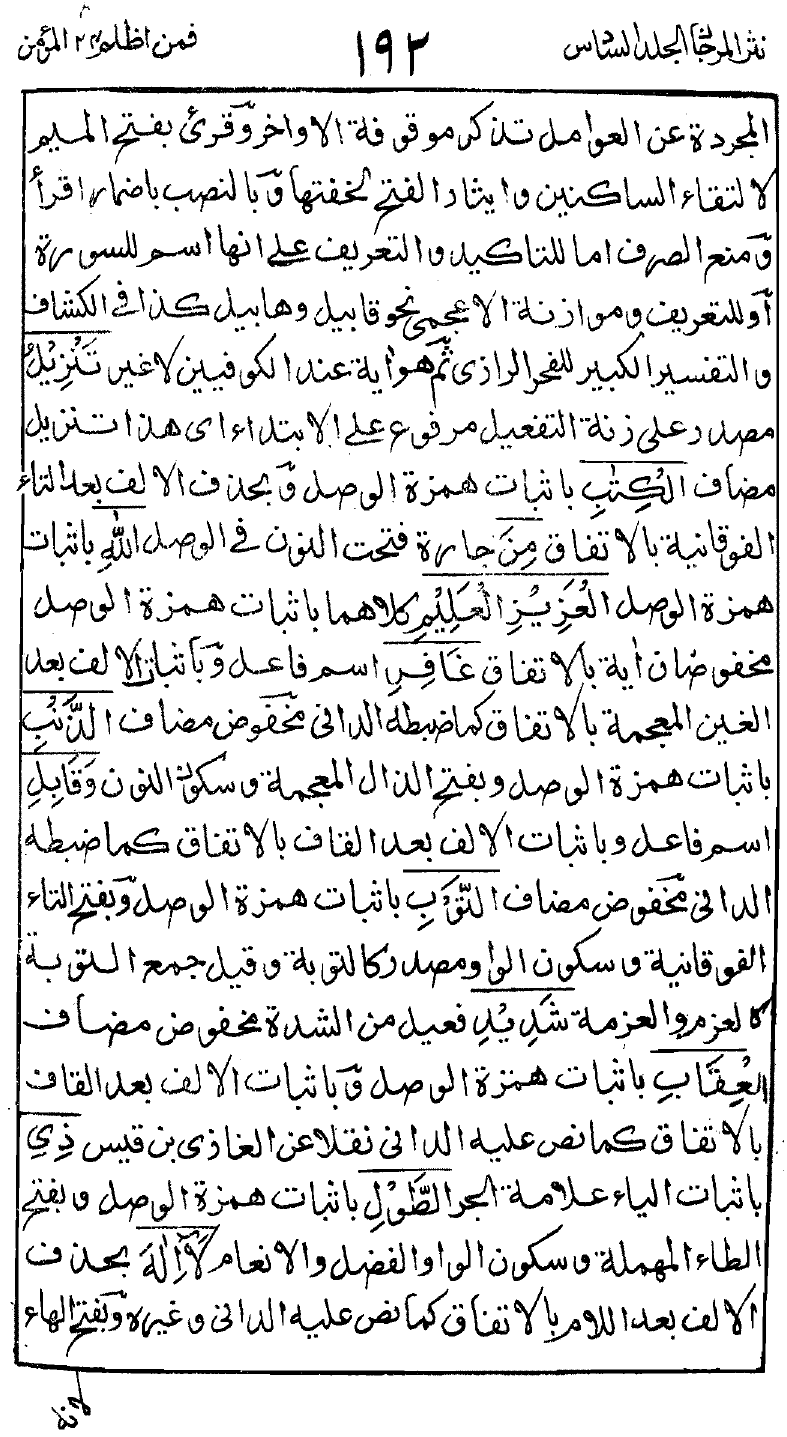 نثر المرجان الجلد السادس ١٩٣ فمن اظلم ٢٤ المؤمن
المجردة عن العوامل تذكر موقوفة الاواخر وقرئ بفتح الميم
لالتقاء الساكنين وايثار الفتح لخفتها وبالنصب باضمار اقرأ
ومنع الصرف اما للتاكيد والتعريف على انها اسم للسورة
أو للتعريف وموازنة الاعجمى نحو قابيل وهابيل كذا فى الكشاف
والتفسير الكبير للفخر الرازى ثم هو اية عند الكوفيين لا غير تَنْزِيْلُ
مصدر على زنة التفعيل مرفوع على الابتداء اى هذا تنزيل
مضاف الْكِتٰبِ باثبات همزة الوصل وبحذف الالف بعد التاء
الفوقانية بالاتفاق مِنَ جارة فتحت النون فى الوصل اللّٰهِ باثبات
همزة الوصل الْعَزِيْزِ الْعَلِيْمِ كلاهما باثبات همزة الوصل
مخفوضان أية بالاتفاق غَافِرِ اسم فاعل وباثبات الالف بعد
الغين المعجمة بالاتفاق كما ضبطه الدانى مخفوض مضاف الذَّنْبِ
باثبات همزة الوصل وبفتح الذال المعجمة وسكون النون وَقَابِلِ
اسم فاعل وباثبات الالف بعد القاف بالاتفاق كما ضبطه
الدانى مخفوض مضاف التَّوْبِ باثبات همزة الوصل وبفتح التاء
الفوقانية وسكون الواو مصدر كالتوبة وقيل جمع التوبة
كالعزم والعزمة شَدِيْدِ فعيل من الشدة مخفوض مضاف
الْعِقَابِ باثبات همزة الوصل وباثبات الالف بعد القاف
بالاتفاق كما نص عليه الدانى نقلا عن الغازى بن قيس ذِي
باثبات الياء علامة الجر الطَّوْلِ باثبات همزة الوصل وبفتح
الطاء المهملة وسكون الواو الفضل والانعام لَآ اِلٰهَ بحذف
الالف بعد اللام بالاتفاق كما نص عليه الدانى وغيره وبفتح الهاء